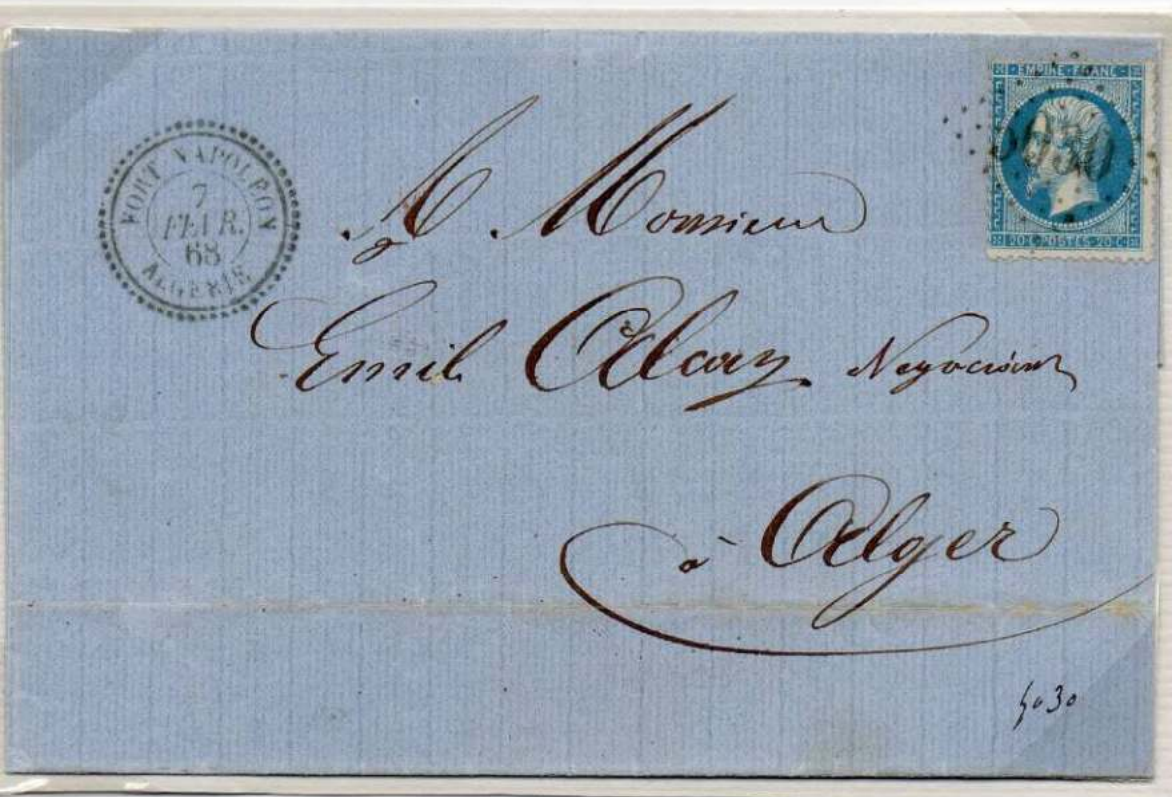 FORT NAPOLEON
7
FEVR.
68
ALGERIE
EMPIRE FRANC
5030
20 C POSTES 20 C
A Monsieur
Emil Negociant
à Alger
5030